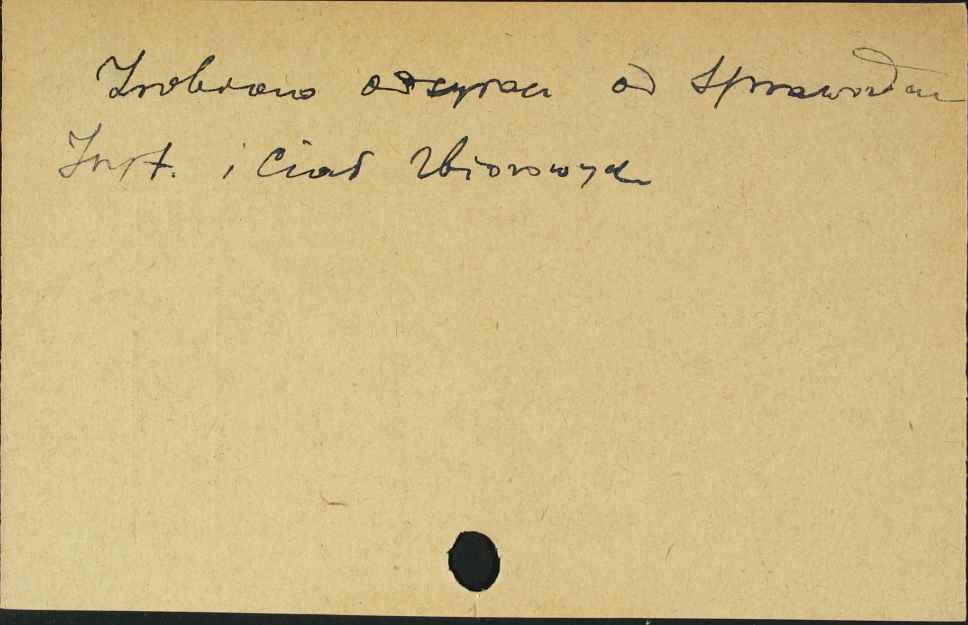 Zrobiono odsyłacz od Sprawozdań
Inst. i Ciał Zbiorowych